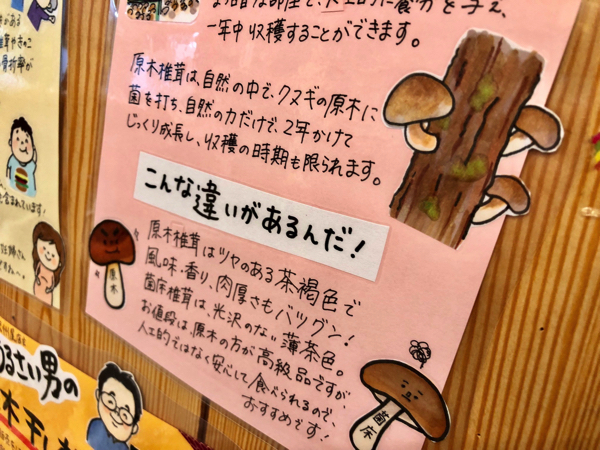 な部屋で、人工的に養分を与え、
一年中収穫することができます。
原木椎茸は、自然の中で、クヌギの原木に
菌を打ち、自然の力だけで、2年かけて
じっくり成長し、収穫の時期も限られます。
こんな違いがあるんだ!
原木椎茸はツヤのある茶褐色で
風味・香り、肉厚さもバツグン!
菌床椎茸は、光沢のない薄茶色。
お値段は、原木の方が高級品ですが、
人工的ではなく安心して食べられるので、
おすすめです!
原木
菌床
がある
骨折率が
含まれています!
妊婦さん
うるさい男の
木干し